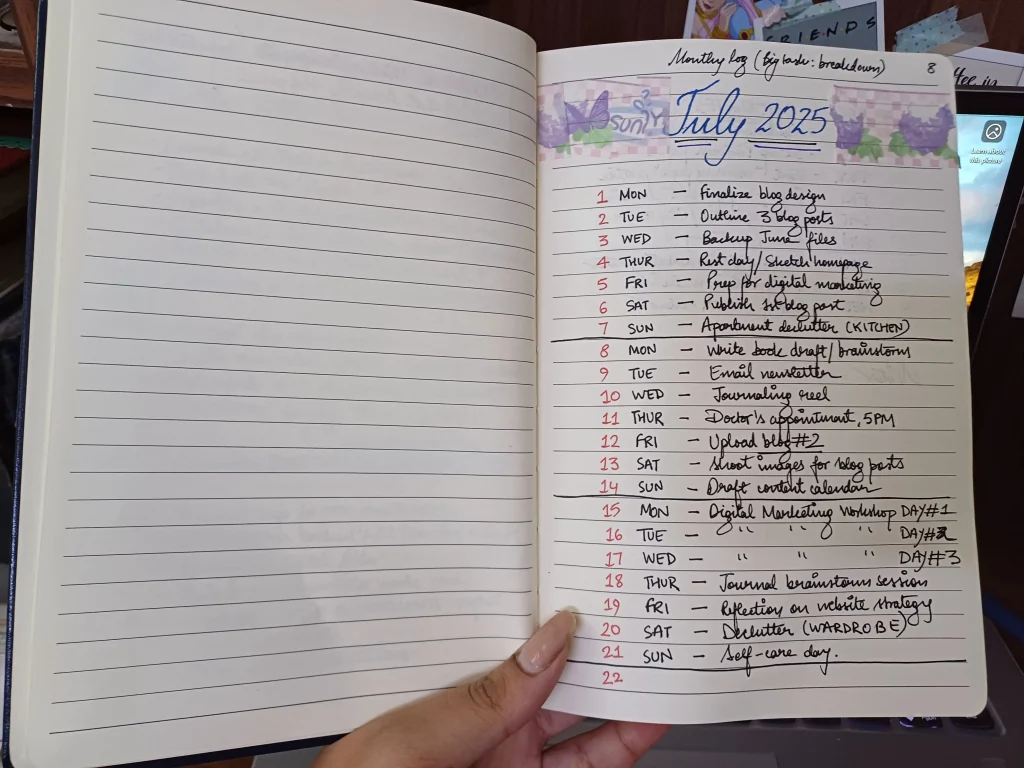 FRIENDS
Monthly log (Big task: breakdown) 8
July 2025
1 MON — Finalize blog design
2 TUE — Outline 3 blog posts
3 WED — Backup June files
4 THUR — Rest day/Sketch homepage
5 FRI — Prep for digital marketing
6 SAT — Publish 1st blog post
7 SUN — Apartment declutter (KITCHEN)
8 MON — Write book draft/brainstorm
9 TUE — Email newsletter
10 WED — Journaling reel
11 THUR — Doctor's appointment, 5PM
12 FRI — Upload blog #2
13 SAT — Shoot images for blog posts
14 SUN — Draft content calendar
15 MON — Digital Marketing Workshop DAY#1
16 TUE — " " " DAY#2
17 WED — " " " DAY#3
18 THUR — Journal brainstorm session
19 FRI — Reflection on website strategy
20 SAT — Declutter (WARDROBE)
21 SUN — Self-care day.
22
Learn about
this picture